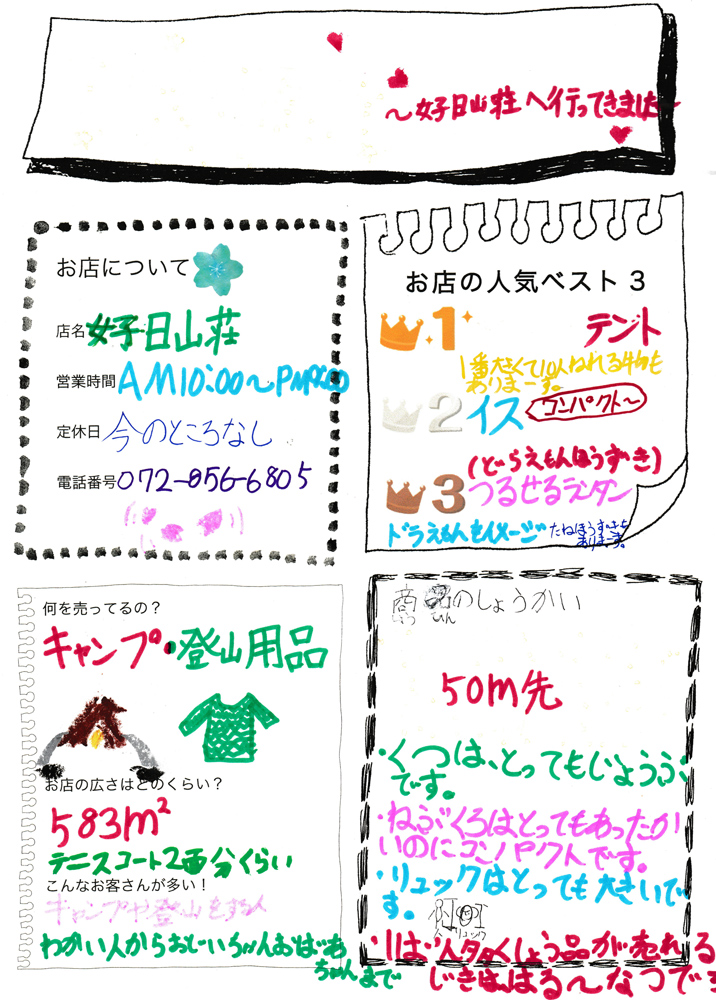 ～好日山荘へ行ってきました～
お店について
店名 好日山荘
営業時間 AM10:00～PM9:00
定休日 今のところなし
電話番号 072-856-6805
お店の人気ベスト3
1 テント
1番大きくて10人ねれる物も
ありまーす。
2 イス コンパクト～
(どらえもんほうずき)
3 つるせるランタン
ドラえもんをイメージ
たねほうずきも
ありまーす。
何を売ってるの？
キャンプ・登山用品
お店の広さはどのくらい？
583m²
テニスコート2面分くらい
こんなお客さんが多い！
キャンプや登山をする人
わかい人からおじいちゃんおばあ
ちゃんまで
商品のしょうかい
50m先
・くつは、とってもじょうぶ
です。
・ねぶくろはとってもあったか
いのにコンパクトです。
・リュックはとっても大きいで
す。
しょう品が売れる
じきは、はる～なつです